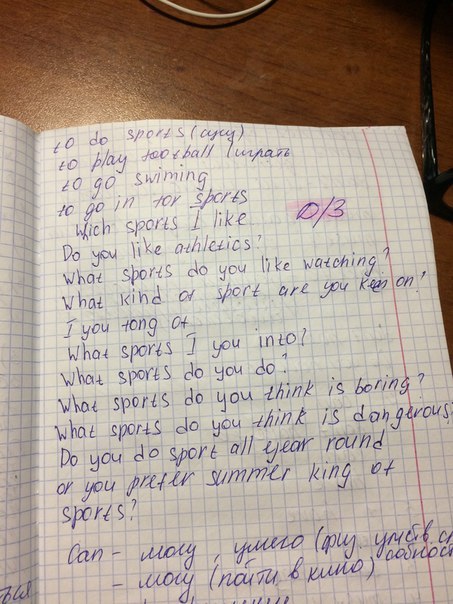 to do sports (
to play football (играть
to go swiming
to go in for sports
Wich sports I like
D/З
Do you like athletics?
What sports do you like watching?
What kind of sport are you keen on?
I you fong of
What sports I you into?
What sports do you do?
What sports do you think is boring?
What sports do you think is dangerous
Do you do sport all year round
or you prefer summer king of
sports?
Can - могу, умею (физ. умств. сп
- могу (пойти в кино) собност